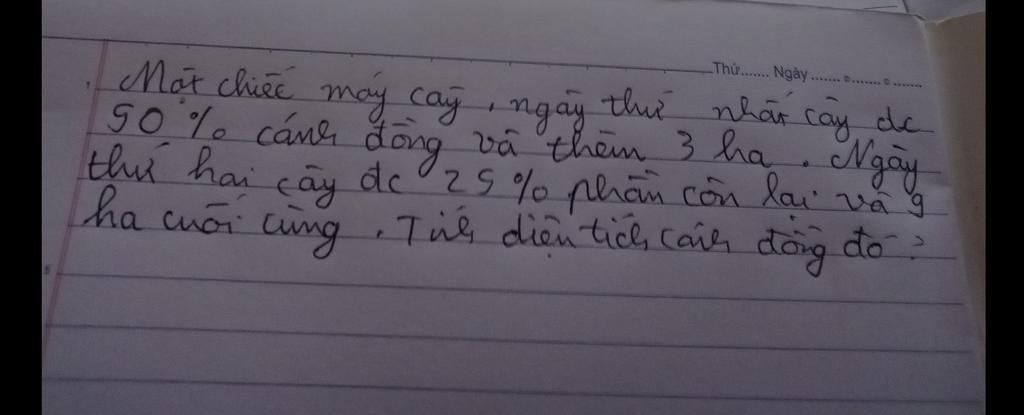 Thứ....... Ngày ....... .......
Một chiếc máy cày, ngày thứ nhất cày đc
50% cánh đồng và thêm 3 ha. Ngày
thứ hai cày đc 25% phần còn lại và 9
ha cuối cùng. Tính diện tích cánh đồng đó?